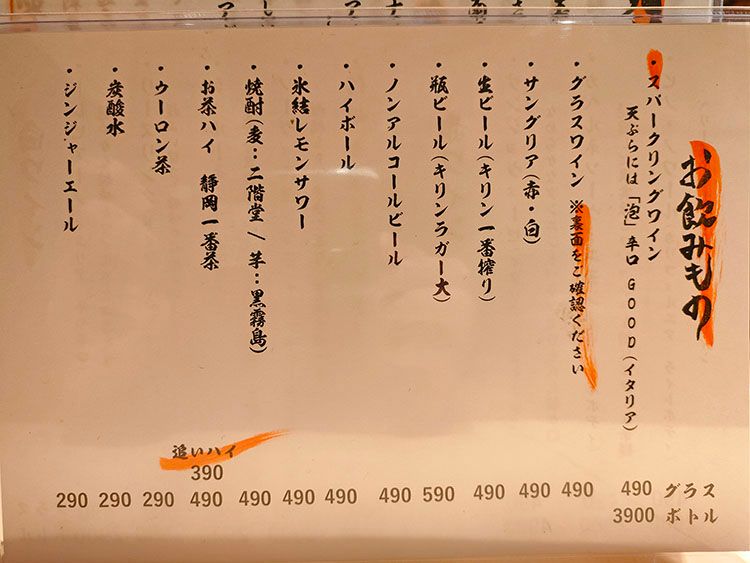 お飲みもの
・スパークリングワイン
天ぷらには「泡」辛口 GOOD(イタリア)
グラス 490
ボトル 3900
・グラスワイン ※裏面をご確認ください 490
・サングリア(赤・白) 490
・生ビール(キリン一番搾り) 490
・瓶ビール(キリンラガー大) 590
・ノンアルコールビール 490
・ハイボール 490
・氷結レモンサワー 490
・焼酎(麦…二階堂 / 芋…黒霧島) 490
・お茶ハイ 静岡一番茶 490
追いハイ
390
・ウーロン茶 290
・炭酸水 290
・ジンジャーエール 290